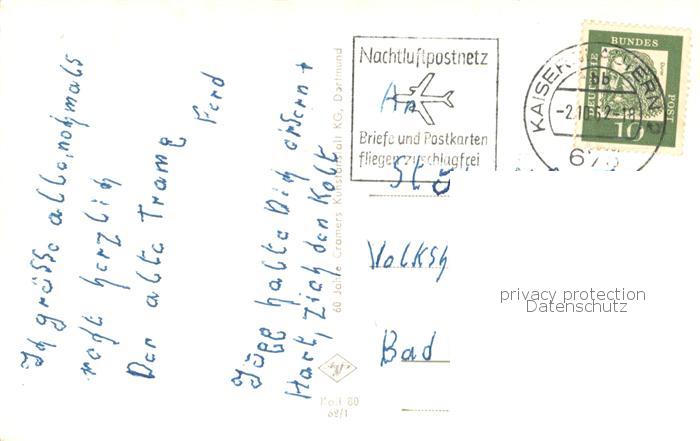 Ich grüsse alle, nochmals
recht herzlich
Der alte Tramp
Ferd
Jupp halte Dich ordern +
Hart, zieh den Kolt
60 Jahre Cramers Kunstanstalt KG, Dortmund
Nachtluftpostnetz
Briefe und Postkarten
fliegen zuschlagfrei
KAISERSLAUTERN 2
bb
-2.10.62-18
675
DEUTSCHE
BUNDES
POST
10
An
Volksh
Bad
privacy protection
Datenschutz
68/1